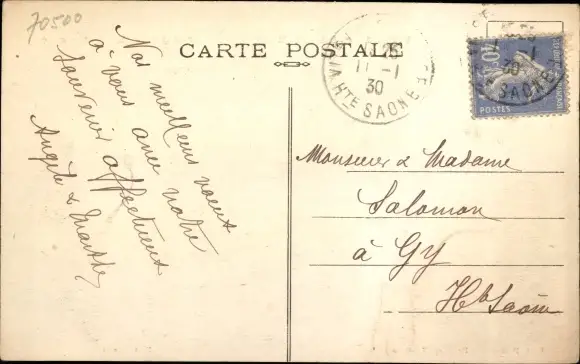 70500
CARTE POSTALE
11 -1
30
Hte SAONE
40
POSTES
30
SAONE
Nos meilleurs voeux
à vous avec notre
Souvenir affectueux
Angèle & Marthe
Monsieur & Madame
Salomon
à Gy
Hte Saône